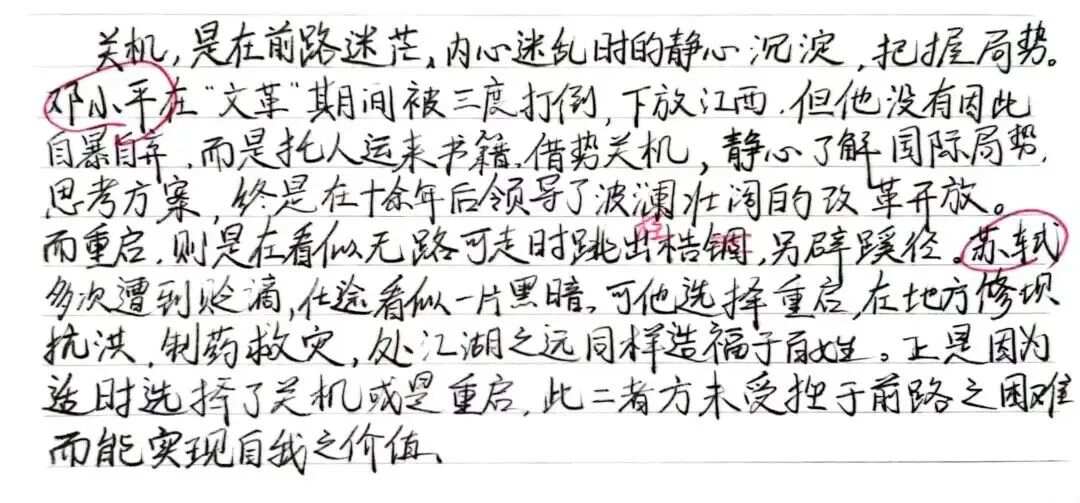 关机，是在前路迷茫、内心迷乱时的静心沉淀，把握局势。
邓小平在“文革”期间被三度打倒，下放江西，但他没有因此
自暴自弃，而是托人运来书籍，借势关机，静心了解国际局势，
思考方案，终是在十余年后领导了波澜壮阔的改革开放。
而重启，则是在看似无路可走时跳出桎锢，另辟蹊径。苏轼
多次遭到贬谪，仕途看似一片黑暗，可他选择重启，在地方修坝
抗洪，制药救灾，处江湖之远同样造福于百姓。正是因为
适时选择了关机或是重启，此二者方未受挫于前路之困难
而能实现自我之价值。